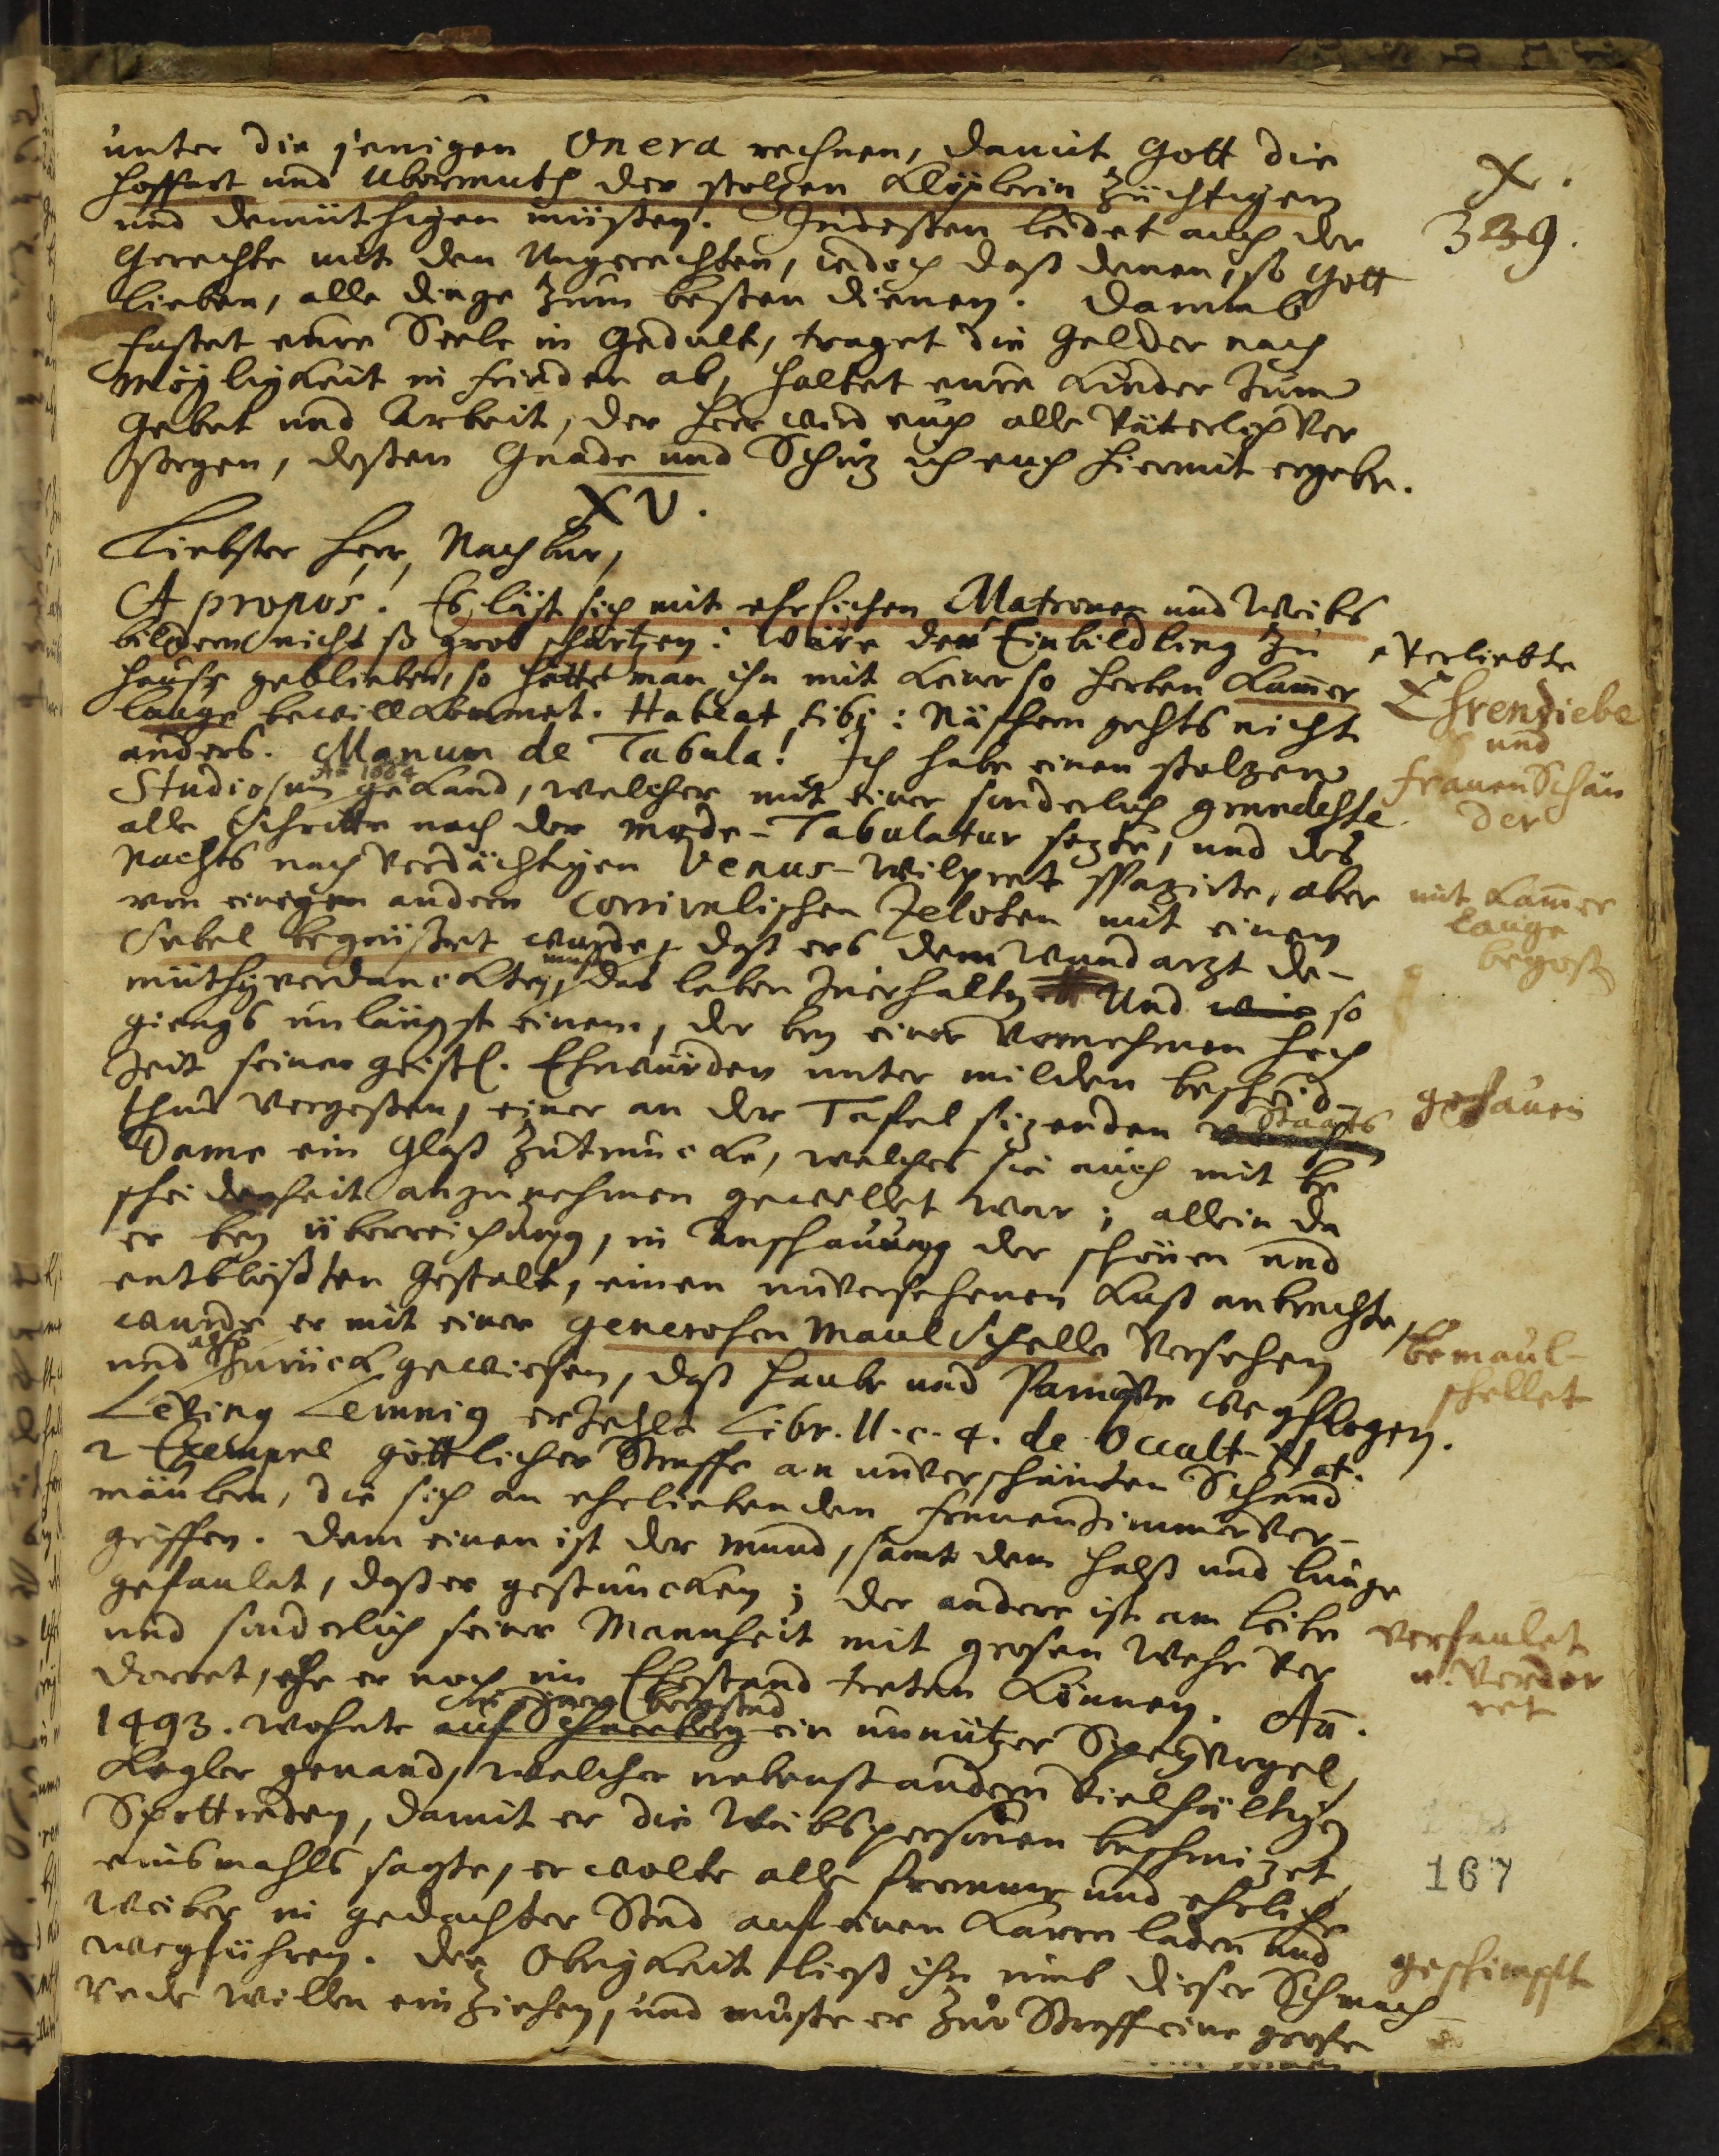 unter die jenigen Onera rechnen, damit Gott die
Hoffart und Ubermuth der stolzen Klöplerin züchtigen
und demüthigen müssen. Indessen leidet auch der
Gerechte mit den Ungerechten, iedoch daß denen, so Gott
lieben, alle dinge zum besten dienen. Darumb
fasset eure Seele in Gedult, traget die Gelder nach
Mögligkeit in frieden ab, haltet eure Kinder zum
Gebet und Arbeit, der Herr wird euch alle Vätterlich Ver
sorgen, dessen Gnade und Schuz ich euch hiermit ergebe.
X.
339.
XV.
Liebster Herr, Nachbar,
A propos! Es läst sich mit ehrlichen Matronen und Weibs
bildern nicht so grob schertzen: wäre der Einbildling zu
Hause geblieben, so hätte man ihn mit keiner so herben Kammer
lauge bewillkommet. Habeat sibi: Näschern gehts nicht
anders. Manum de Tabula! Ich habe einen stolzen
Studiosum Aō 1664 gekand, welcher mit einer sonderlich
alle Schritte nach der mode-Tabulatur sezte, und des
Nachts nach verdächtigen Venus-Wilpret spazirte, aber
von einigen andern Zeloten mit einem
Sebel begrüsset wurde, daß ers dem Wundarzt de-
müthig verdancken muste, das leben zuerhalten. Und so
giengs unlängst einem, der bey einer Vornehmen Hoch
zeit seiner geistl. Ehrwürden unter milden bescheid
thun vergessen, einer an der Tafel sizenden Staats
Dame ein Glaß zutruncke, welches sie auch mit be
scheidenheit anzunehmen gewillet war; allein da
er bey überreichung, in Anschauung der schönen und
entblösten Gestalt, einen unversehenen Kuß anbrachte,
wurde er mit einer generosen Maulschelle versehen
und also zurück gewiesen, daß Haube und weg flogen.
Leving Lemnig erzehlt Libr. II. c. 4. de Occult. Nat.
2 Exempel göttlicher Straffe an unverschämten Schand
mäulern, die sich an ehrliebenden Frauenzimmer ver-
griffen. Dem einen ist der Mund, samt dem Halß und lunge
gefaulet, daß er gestuncken; der andere ist am leibe
und sonderlich seiner Mannheit mit grosen Wehe ver
dorret, ehe er noch im Ehestand treten können. Añ.
1493. wohnte auf Schneeberg ein unnützer Speyvogel,
Kegler genand, welcher nebenst andern Vielfältigen
Spottreden, damit er die Weibspersonen beschmizet,
einsmahls sagte, er wolte alle fromme und ehrliche
Weiber in gedachter Stad auf einen Karrn laden und
wegführen. Die Obrigkeit ließ ihn umb dieser Schmach
rede willen einziehen, und muste er zur Straff eine grose
Verliebte
Ehrendiebe
und
frauenSchän
der
mit Kammer
lauge
begost
gehauen
bemaul-
schellet
verfaulet
u. verdor
ret
167
geschimpfft